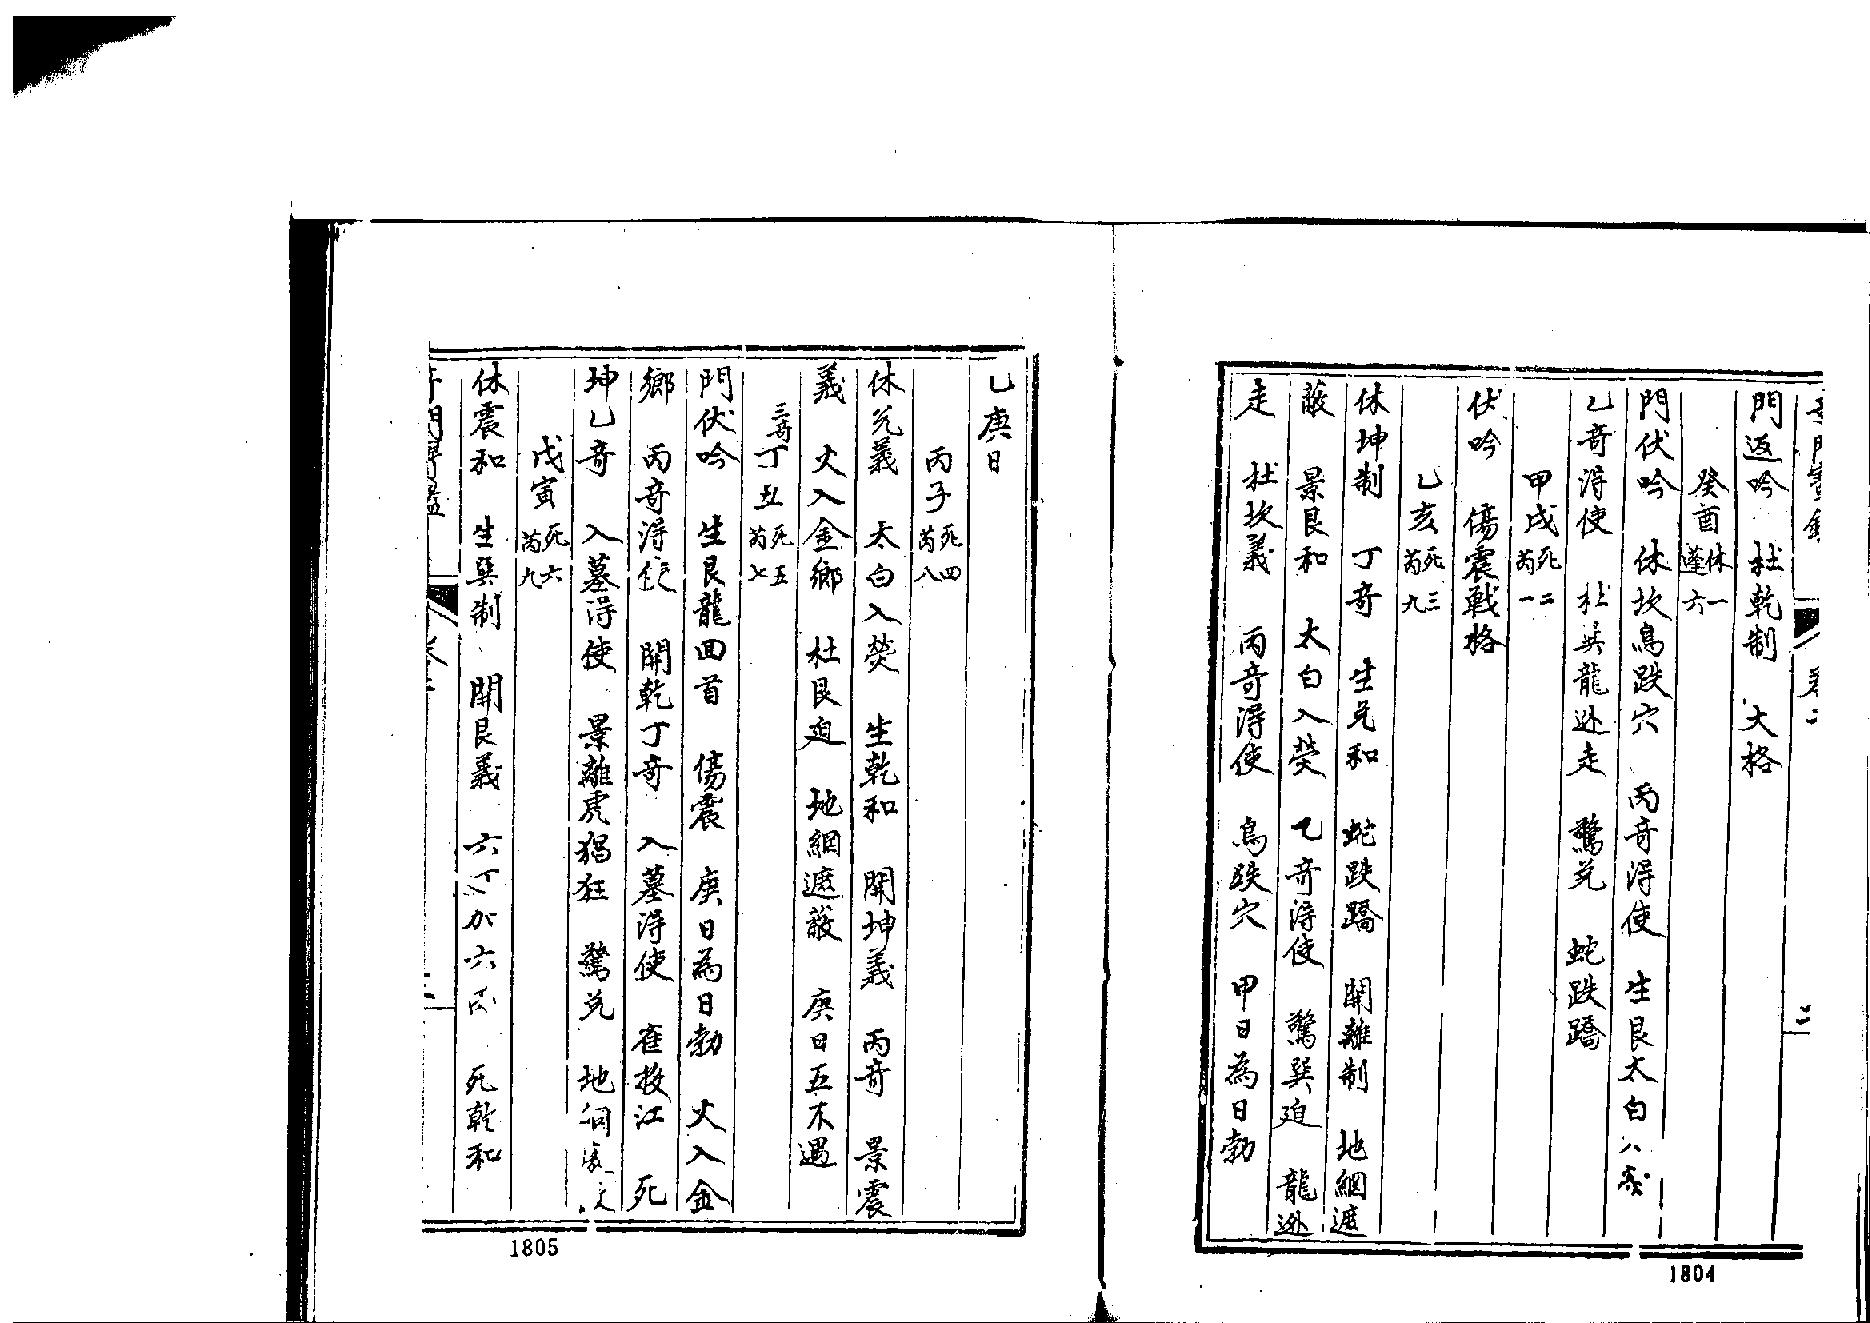 門返吟　杜乾制　大格
癸酉休一蓬六
門伏吟　休坎鳥跌穴　丙奇得使　生艮太白入
乙奇得使　杜巽龍逃走　驚兌　蛇跌蹻
甲戌死二芮一
伏吟　傷震戰格
乙亥死三芮九
休坤制　丁奇　生兌和　蛇跌蹻　開離制　地網遮
蔽　景艮和　太白入熒　乙奇得使　驚巽迫　龍逃
走　杜坎義　丙奇得使　鳥跌穴　甲日為日勃
1804
乙庚日
丙子死四芮八
休兌義　太白入熒　生乾和　開坤義　丙奇　景震
義　火入金鄉　杜艮迫　地網遮蔽　庚日五不遇
三奇丁丑死五芮七
門伏吟　生艮龍回首　傷震　庚日為日勃　火入金
鄉　丙奇得使　開乾丁奇　入墓得使　雀投江　死
坤乙奇　入墓得使　景離虎猖狂　驚兌　地
戊寅死六芮九
休震和　生巽制　開艮義　六丁加六　死乾和
1805